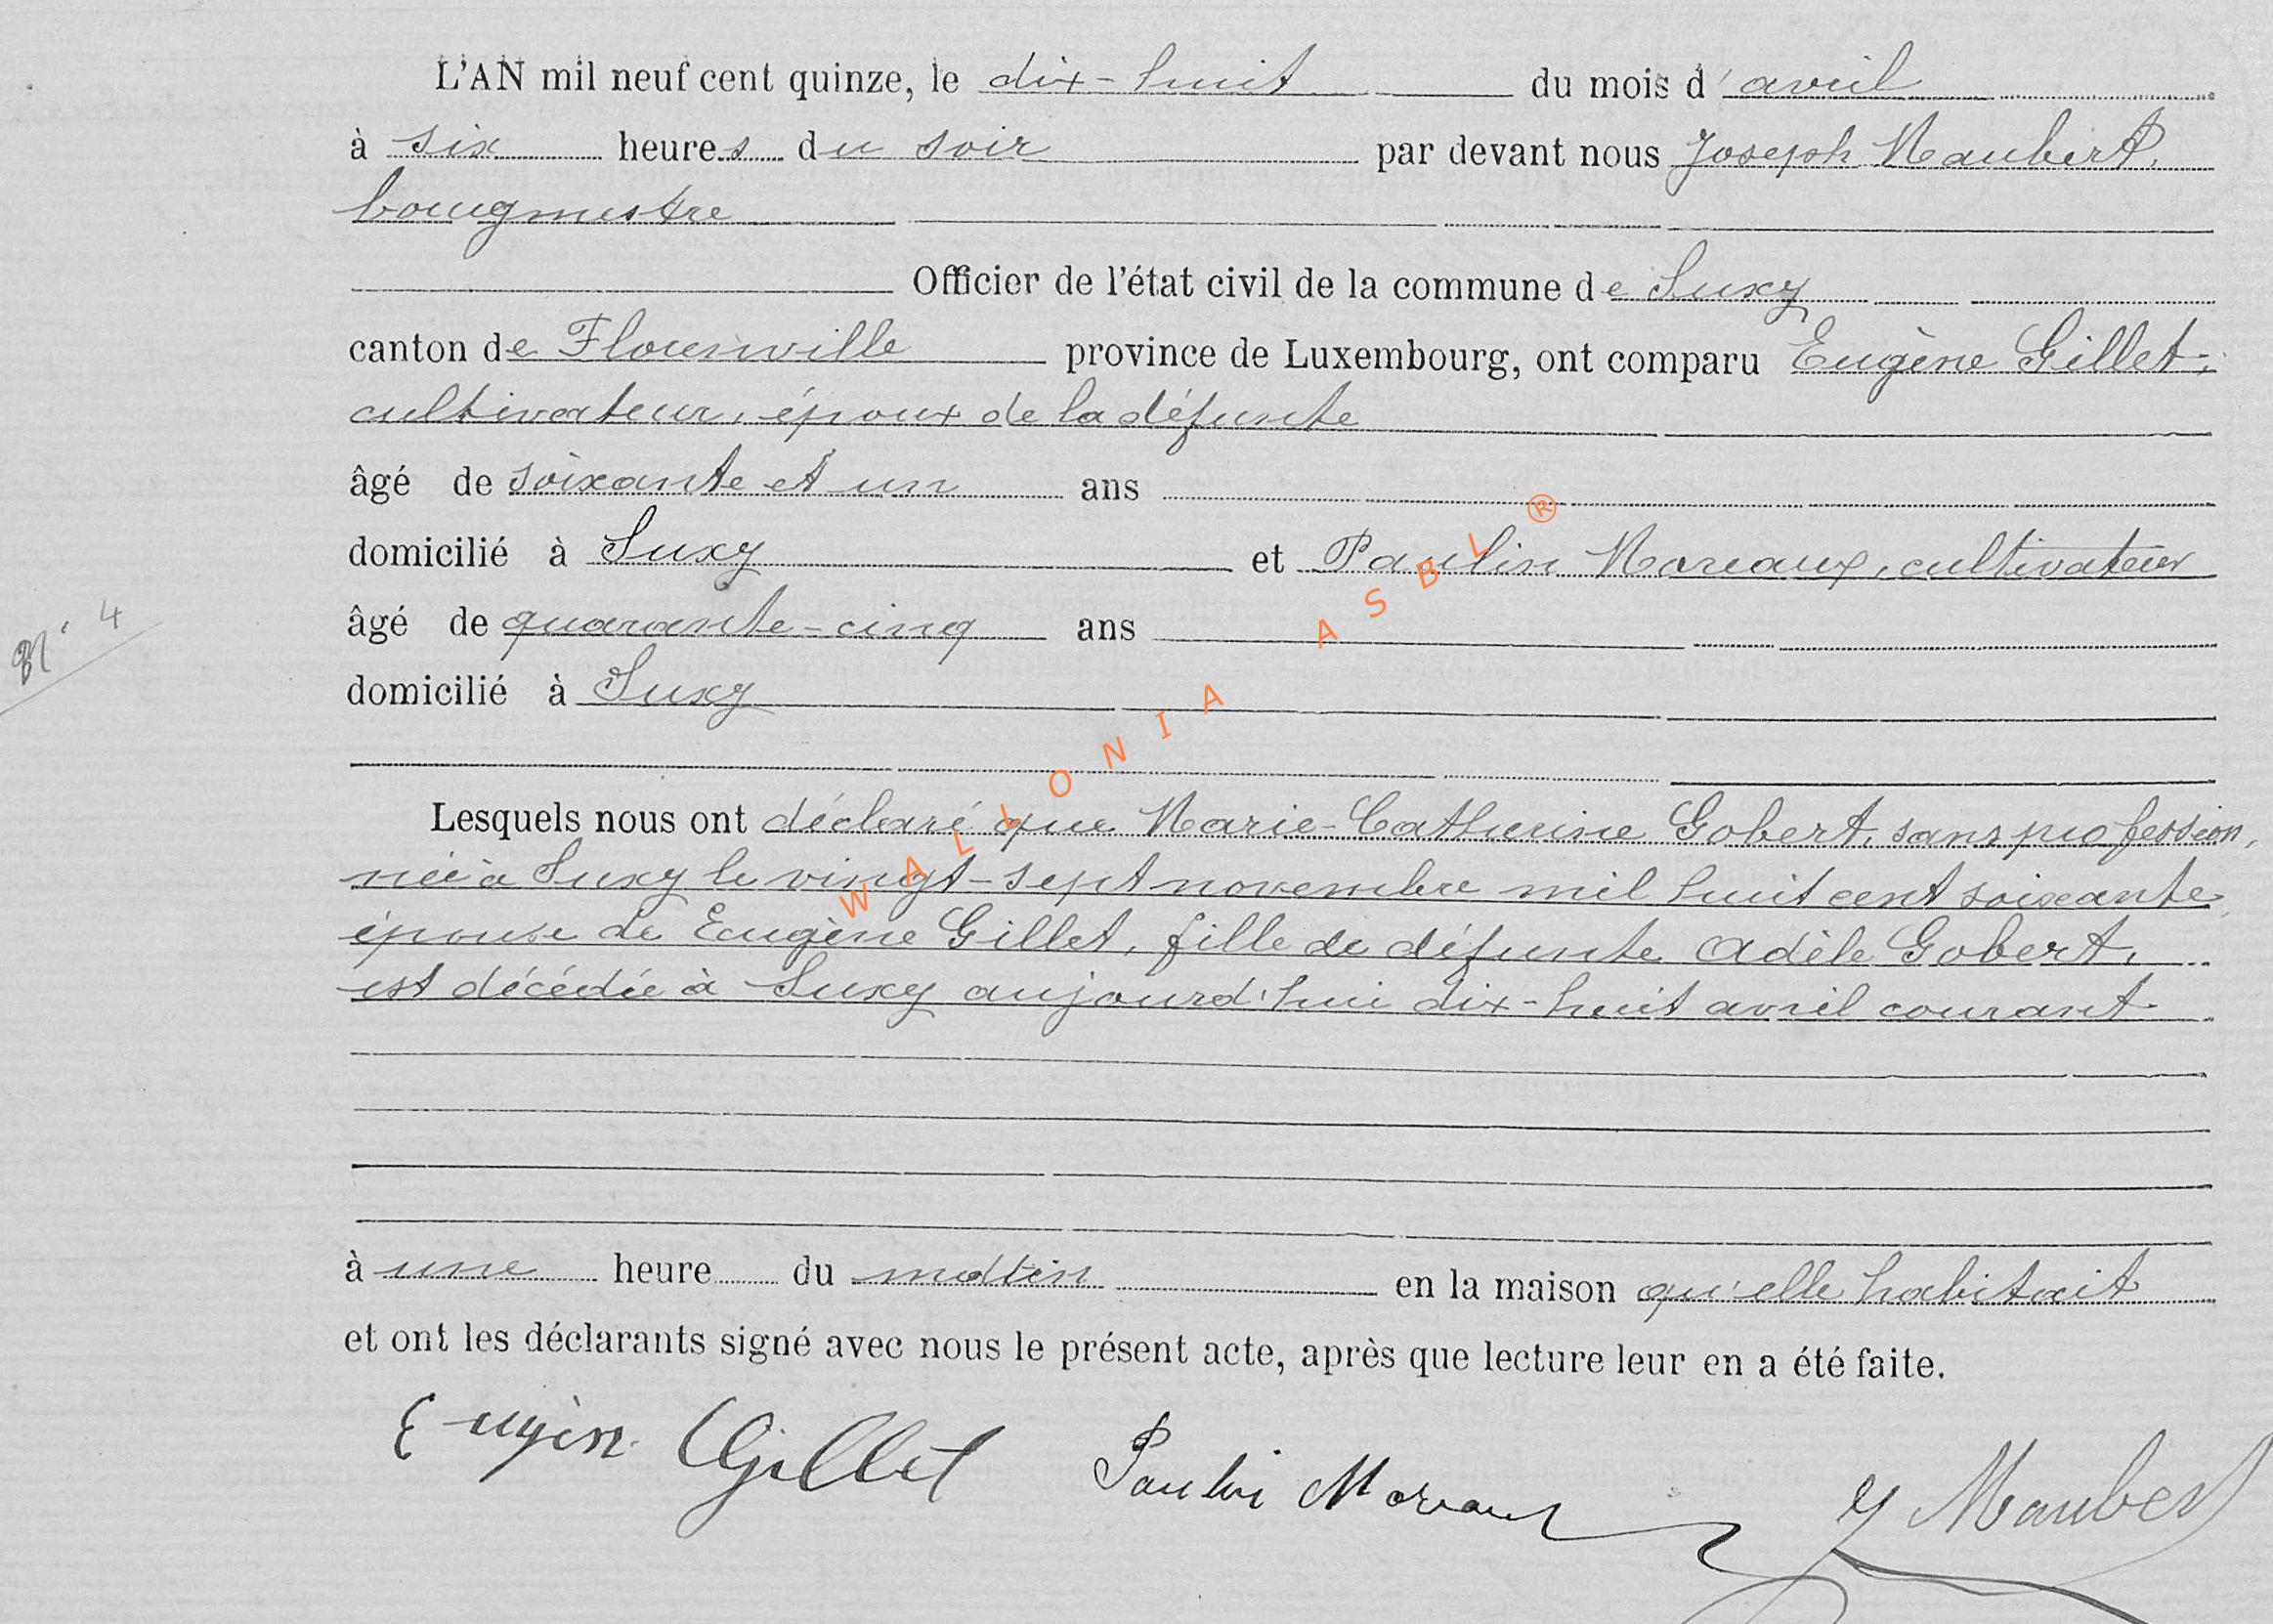 L'AN mil neuf cent quinze, le dix-huit du mois d'avril
à six heures du soir par devant nous Joseph Maubert,
bourgmestre
Officier de l'état civil de la commune de Suxy
canton de Florenville province de Luxembourg, ont comparu Eugène Gillet,
cultivateur, époux de la défunte
âgé de soixante et un ans
domicilié à Suxy et Paulin Moreaux, cultivateur
âgé de quarante-cinq ans
domicilié à Suxy
N° 4
Lesquels nous ont déclaré que Marie-Catherine Gobert, sans profession,
née à Suxy le vingt-sept novembre mil huit cent soixante,
épouse de Eugène Gillet, fille de défunte Adèle Gobert,
est décédée à Suxy aujourd'hui dix-huit avril courant
à une heure du matin en la maison qu'elle habitait
et ont les déclarants signé avec nous le présent acte, après que lecture leur en a été faite.
Eugène Gillet Paulin Moreaux J Maubert
WALLONIA ASBL ®